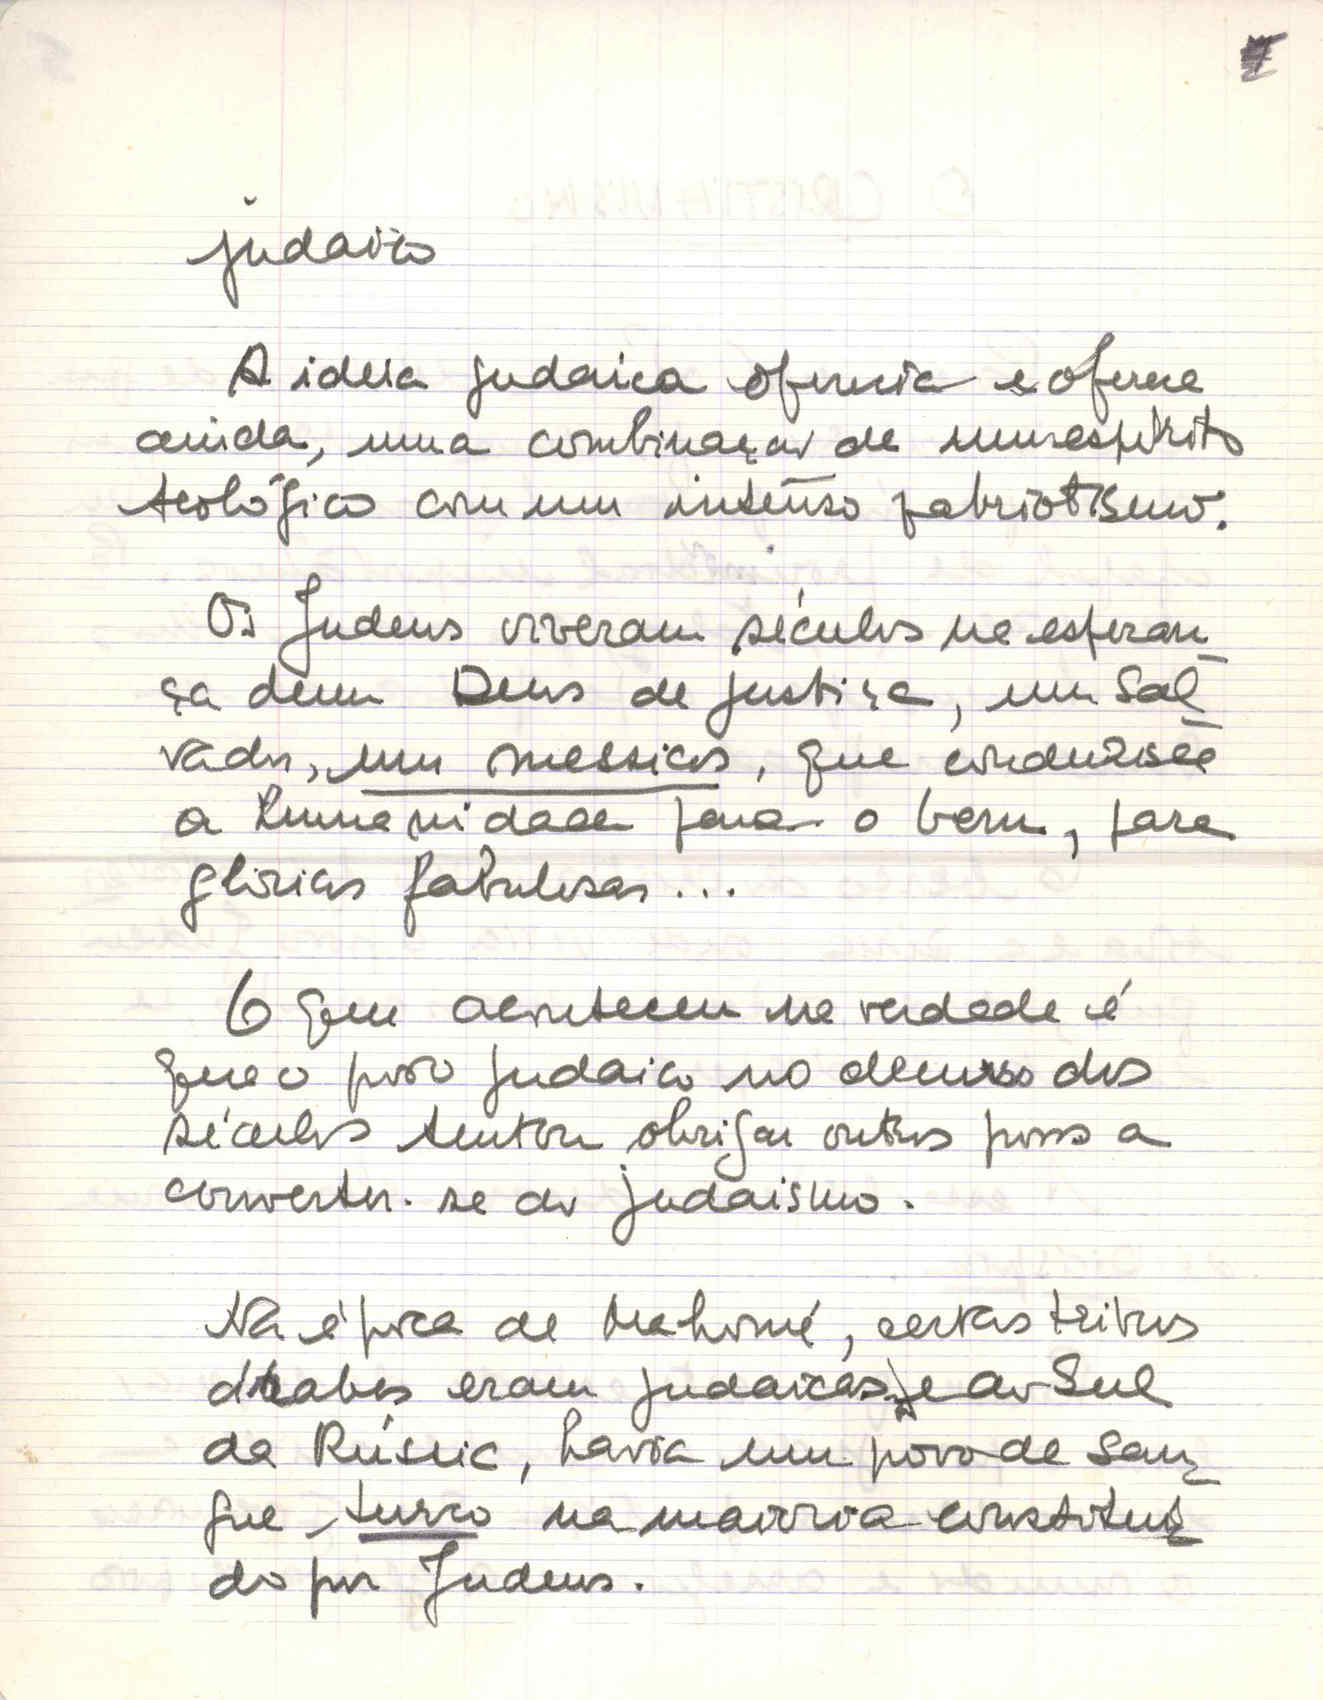 7
judaico
A ideia judaica oferecia e oferece
ainda, uma combinação de um espírito
teológico com um intenso patriotismo.
Os Judeus viveram séculos na esperan-
ça dum Deus de justiça, um Sal-
vador, um messias, que conduzisse
a humanidade para o bem, para
glórias fabulosas...
O que aconteceu na verdade é
que o povo judaico no decurso dos
séculos tentou obrigar outros povos a
converter-se ao judaismo.
Na época de Mahomé, certas tribus
árabes eram judaicas, e ao Sul
da Rússia, havia um povo de san-
gue turco na maioria constituí-
do por Judeus.